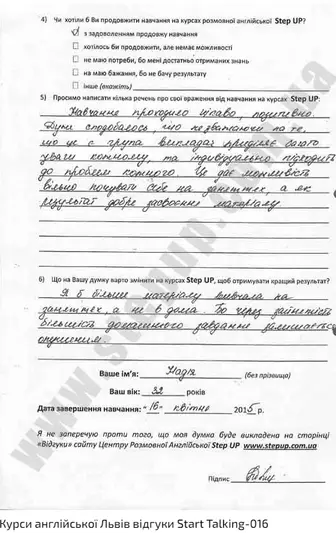 4) Чи хотіли б Ви продовжити навчання на курсах розмовної англійської Step UP?
з задоволенням продовжу навчання
хотілось би продовжити, але немає можливості
не маю потреби, бо мені достатньо отриманих знань
на маю бажання, бо не бачу результату
інше (вкажіть)
5) Просимо написати кілька речень про свої враження від навчання на курсах Step UP:
Навчання проходило цікаво, позитивно.
Дуже сподобалось, що незважаючи на те,
що це є група викладач приділяє багато
уваги кожному, та індивідуально підходить
до проблем кожного. Це дає можливість
вільно почувати себе на заняттях, а як
результат добре засвоєння матеріалу.
6) Що на Вашу думку варто змінити на курсах Step UP, щоб отримувати кращий результат?
Я б більше матеріалу вивчала на
заняттях, а не в дома. Бо через зайнятість
більшість домашнього завдання залишається
опущеним.
Ваше ім'я: Надія (без прізвища)
Ваш вік: 32 років
Дата завершення навчання: "16" квітня 2015 р.
Я не заперечую проти того, що моя думка буде викладена на сторінці
«Відгуки» сайту Центру Розмовної Англійської Step UP www.stepup.com.ua
Підпис
www.stepup.com.ua
Курси англійської Львів відгуки Start Talking-016